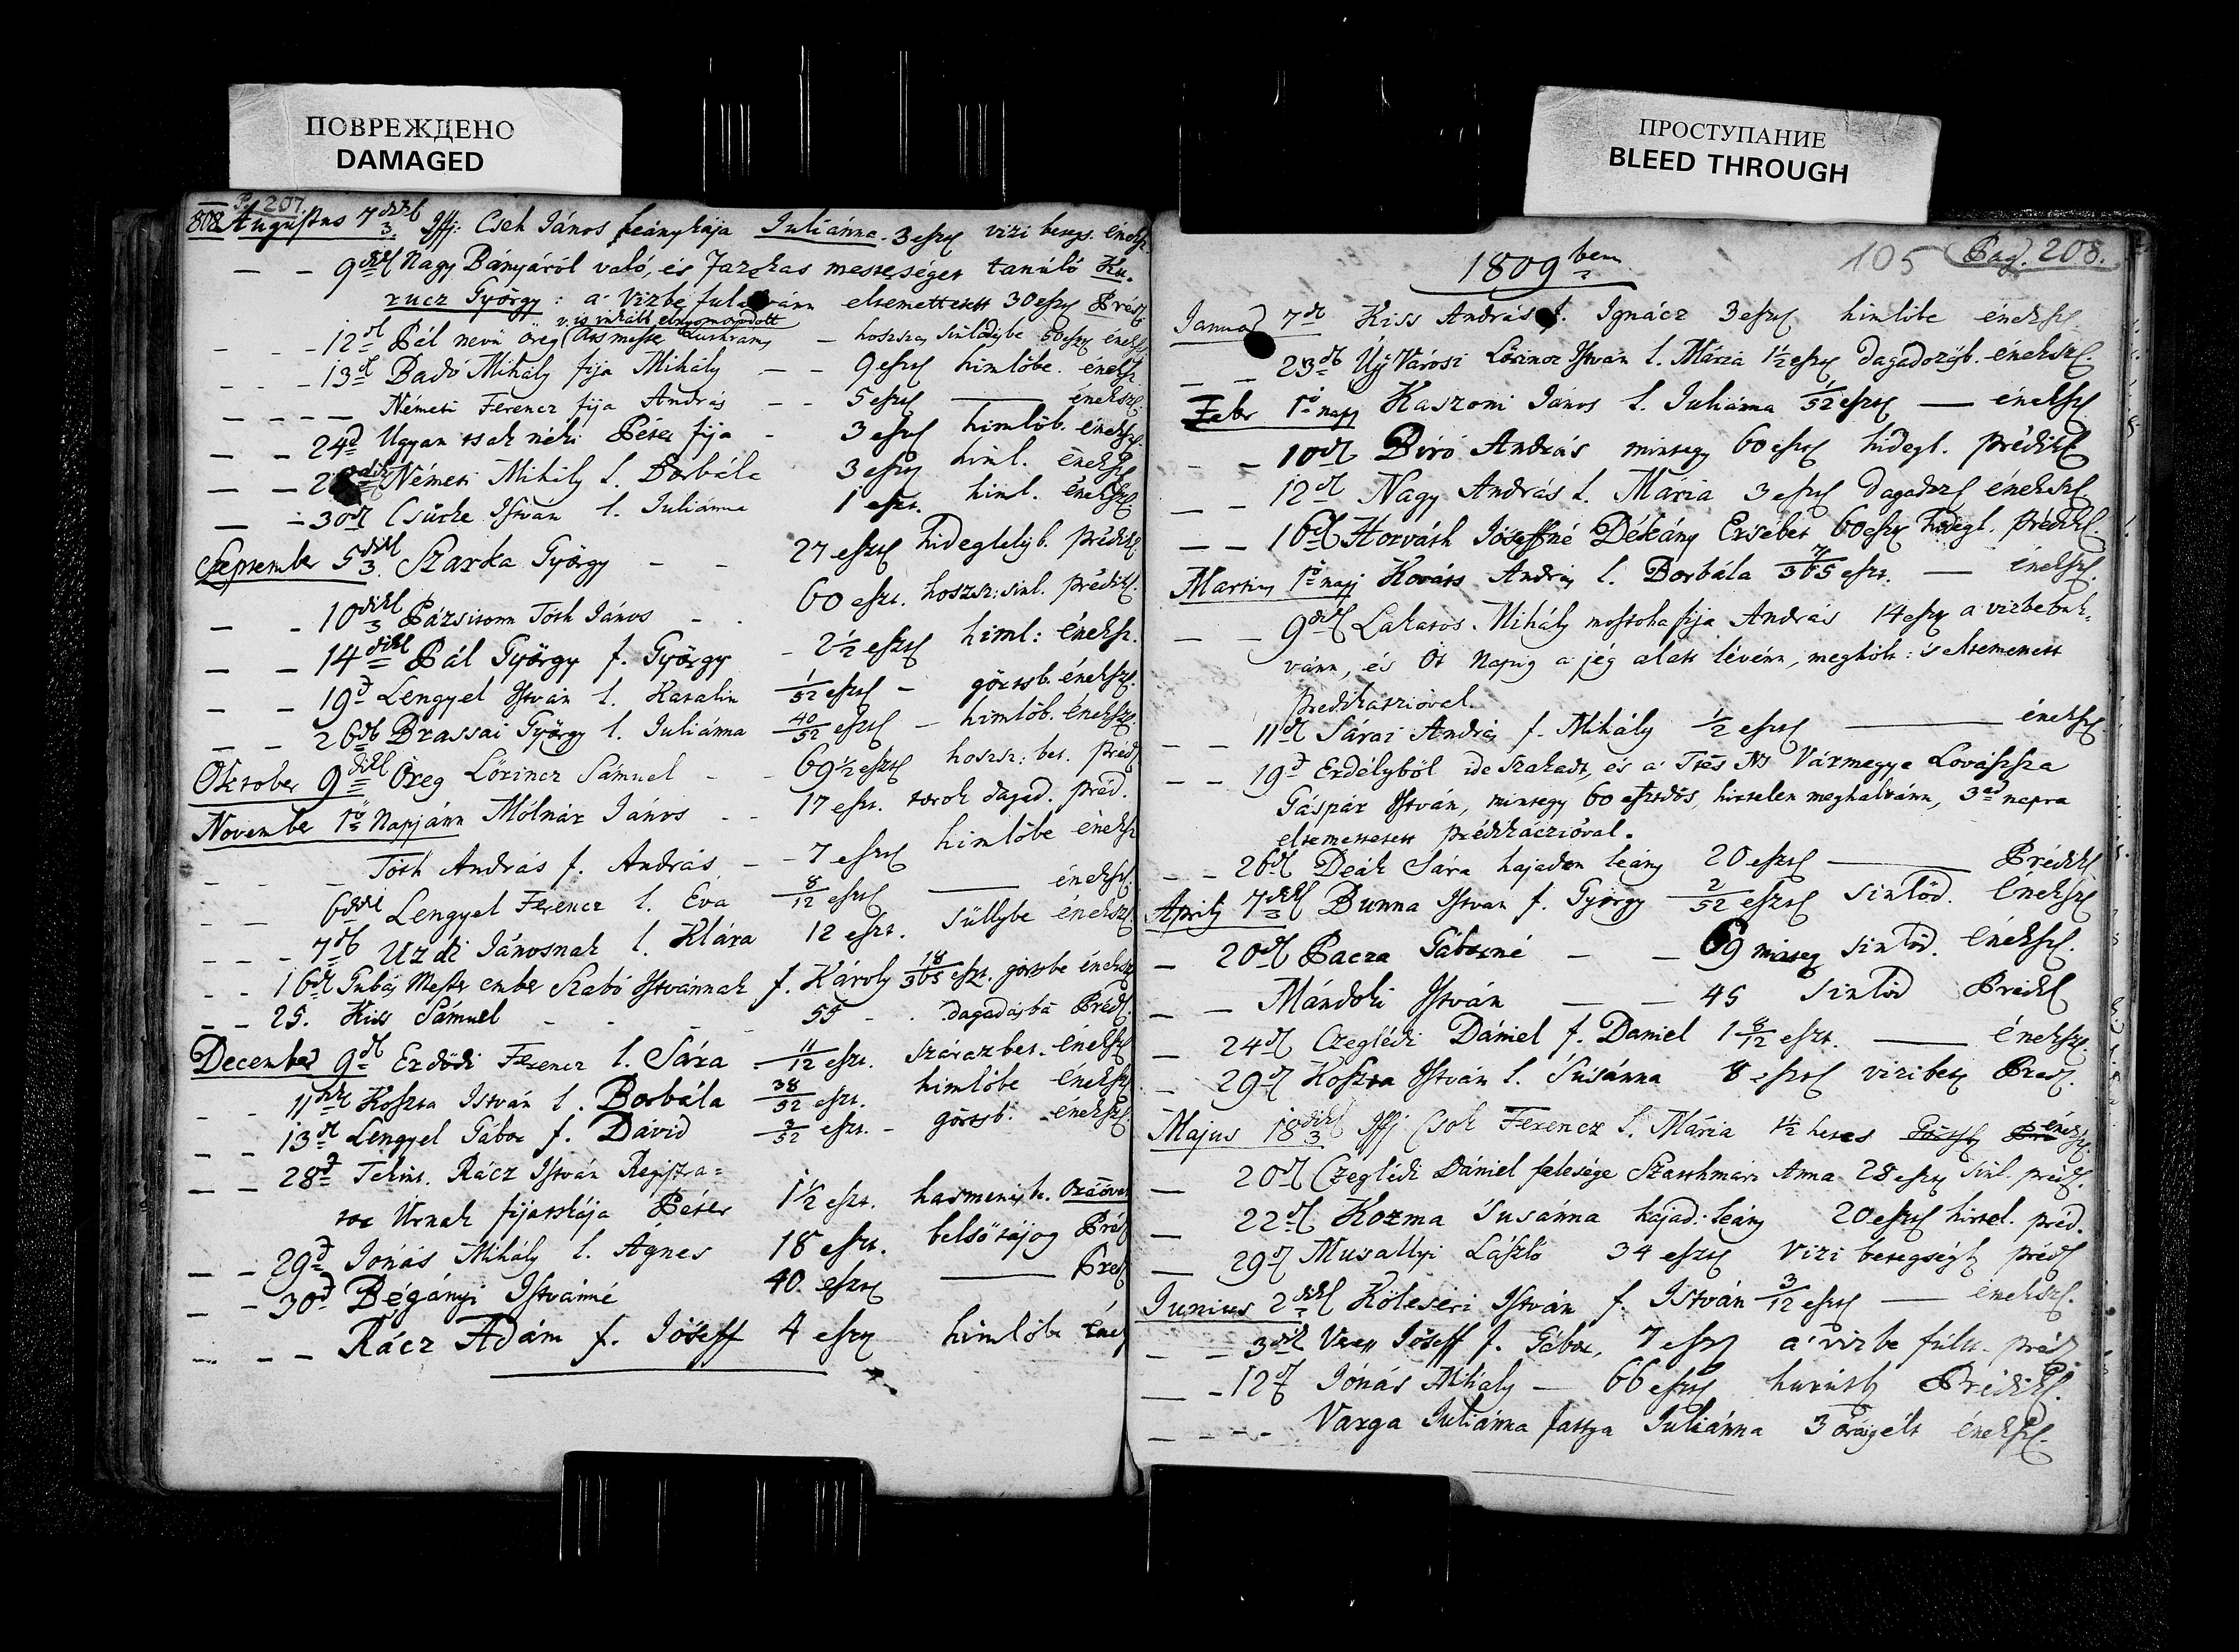 ПОВРЕЖДЕНО
DAMAGED
ПРОСТУПАНИЕ
BLEED THROUGH
P. 207.
808. Augustus 7 Iffj: Cseh János leánykája Juliánna. 3 eszt vizi betegs. éneksz.
— — 9 Nagy Bányáról való, és Fazekas mesteséget tanúló Ku-
rucz György: a' vizbe fulván eltemettetett 30 eszt Préd.
v. is inkább elnyomorodott
— — 12 Pál nevű öreg hoszszas sinlődésbe 50 eszt éneksz
— — 13 Badó Mihály fija Mihály — — 9 eszt himlőbe. éneksz
— — — — Németi Ferencz fija András — — 5 eszt — éneksz
— — 24 Ugyan tsak néki Péter fija — 3 eszt himlőb. éneksz.
— — 2 Németi Mihály l. Borbála 3 eszt himl. éneksz
— — 30 Csücke István l. Juliánna 1 eszt. himl. éneksz
September 5 Szarka György — — 27 eszt hideglelésb. prédik.
— — 10 Pázsitom Tóth János — — 60 eszt. hoszsz: sinl. prédik.
— — 14 Pál György f. György — 2½ eszt himl: éneksz.
— — 19 Lengyel István l. Katalin 1/52 eszt — görtsb. éneksz.
— — 26 Brassai György l. Juliánna 40/52 eszt — himlőb. éneksz.
Oktober 9 Öreg Lörincz Sámuel — — 69½ eszt hoszsz: bet. préd
November 1ő Napjánn Mólnár János — — 17 eszt. torok dagad. préd.
— — — Tóth András f. András — — 7 eszt himlőbe éneksz
— — 6 Lengyel Ferencz l. Eva 8/12 eszt — éneksz
— — — 7 Uzdi Jánosnak l. Klára 12 eszt. süllybe éneksz
— — 16 Gubás Mester ember Szabó Istvánnak f. Károly 18/365 eszt. görtsbe éneksz
— — 25. Kiss Sámuel — — 55 — — dagadásba Préd.
December 9 Erdődi Ferencz l. Sára — 11/12 eszt. száraz bet. éneksz
— — 11 Koszta István l. Borbála 38/52 eszt. himlőbe éneksz
— — 13 Lengyel Gábor f. Dávid 3/52 eszt. — görtsb. éneksz
— — 28 Tekint. Rácz István Registra=
tor Úrnak fijatskája Péter 1½ eszt.
— — 29 Jónás Mihály l. Ágnes 18 eszt. belső Préd
— — 30 Bégányi Istvánné 40. eszt — Préd
— — — Rácz Ádám f. Jóseff 4 eszt himlőbe
105 Pag. 208.
1809ben
Januar 7 Kiss András f. Ignácz 3 eszt himlőbe éneksz
— — 23 Új Városi Lörincz István l. Mária 1½ eszt éneksz.
Febr 1ő napj Kaszoni János l. Juliánna 1/52 eszt — éneksz
— — 10 Biró András mintegy 60 eszt hidegl. prédik
— — 12 Nagy András l. Mária 3 eszt éneksz
— — 16 Horváth Jóseffné Dékány Ersébet 60 eszt hidegl. prédik
Martius 1ő napj Kováts András l. Borbála 7/365 eszt. — éneksz.
— — 9 Lakatos Mihály mostoha fija András 14 eszt a vizbe buk-
vánn, és öt Napig a jég alatt lévénn, meghólt: is eltemetett
predikatzióval.
— — 11 Sárai András f. Mihály ½ eszt — éneksz
— — 19 Erdélyből ide szakadt, és a' Ttes Ns Vármegye Lovássza
Gáspár István, mintegy 60 esztdős, hirtelen meghalvánn, 3ad napra
eltemettetett prédikáczióval.
— — 26 Deák Sára hajadon leány 20 eszt — Prédik
Aprilis 7 Bunna István f. György 2/52 eszt sinlőd. éneksz
— 20 Pacza Gáborné — — 69 minteg sinlőd. éneksz.
— — Mándoki István — — 45 sinlőd Prédik
— 24 Czeglédi Dániel f. Daniel 1 8/12 eszt. — éneksz
— 29 Koszta István l. Susánna 8 eszt vizi bets Préd.
Majus 18 Iffj Cseh Ferencz l. Mária 1½ hetes éneksz
— 20 Czeglédi Dániel felesége Szatthmári Anna 28 eszt sinl. prédik.
— 22 Kozma Susánna hajad: leány 20 eszt hirtel. préd.
— 29 Musallyi László 34 eszt vizi betegségb prédik
Junius 2 Köleséri István f. István 3/12 eszt — éneksz.
— — 3 Jóseff f. Gábor, 7 eszt a' vizbe fúlt. préd
— — 12 Jónás Mihály — 66 eszt hurútb Prédik.
— — — — Varga Juliánna fattya Juliánna 3 óráig élt éneksz.